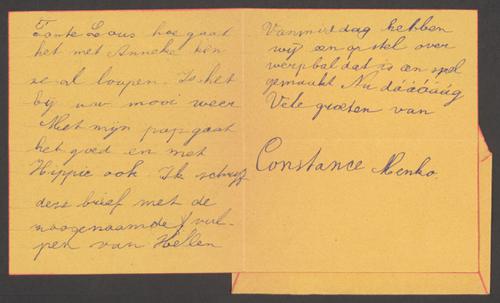 Tante Lous hoe gaat
het met Anneke kën
ze al loupen. Is het
bij uw mooi weer
Met mijn pap gaat
het goed en met
Hippie ook. Ik schrijf
dese brief met de
zoogenaamde vul-
pen van Hellen
Vanmiddag hebben
wij een opstel over
werpbal dat is een spel
gemaakt Nu dáááááág
Vele groeten van
Constance Menko.